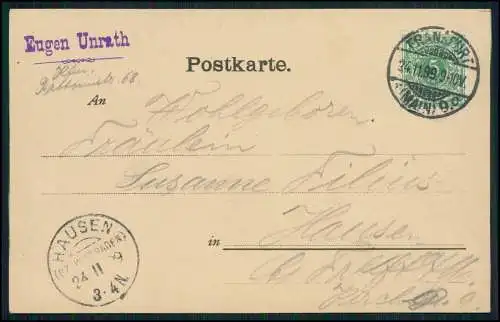 Eugen Unrath
68
Postkarte.
FRANKFURT
24.11.99. 9-10V.
(MAIN) 9.
An
Wohlgeboren
Fräulein
Susanne Filius
in
Hausen
HAUSEN
24 11 9
3-4N.